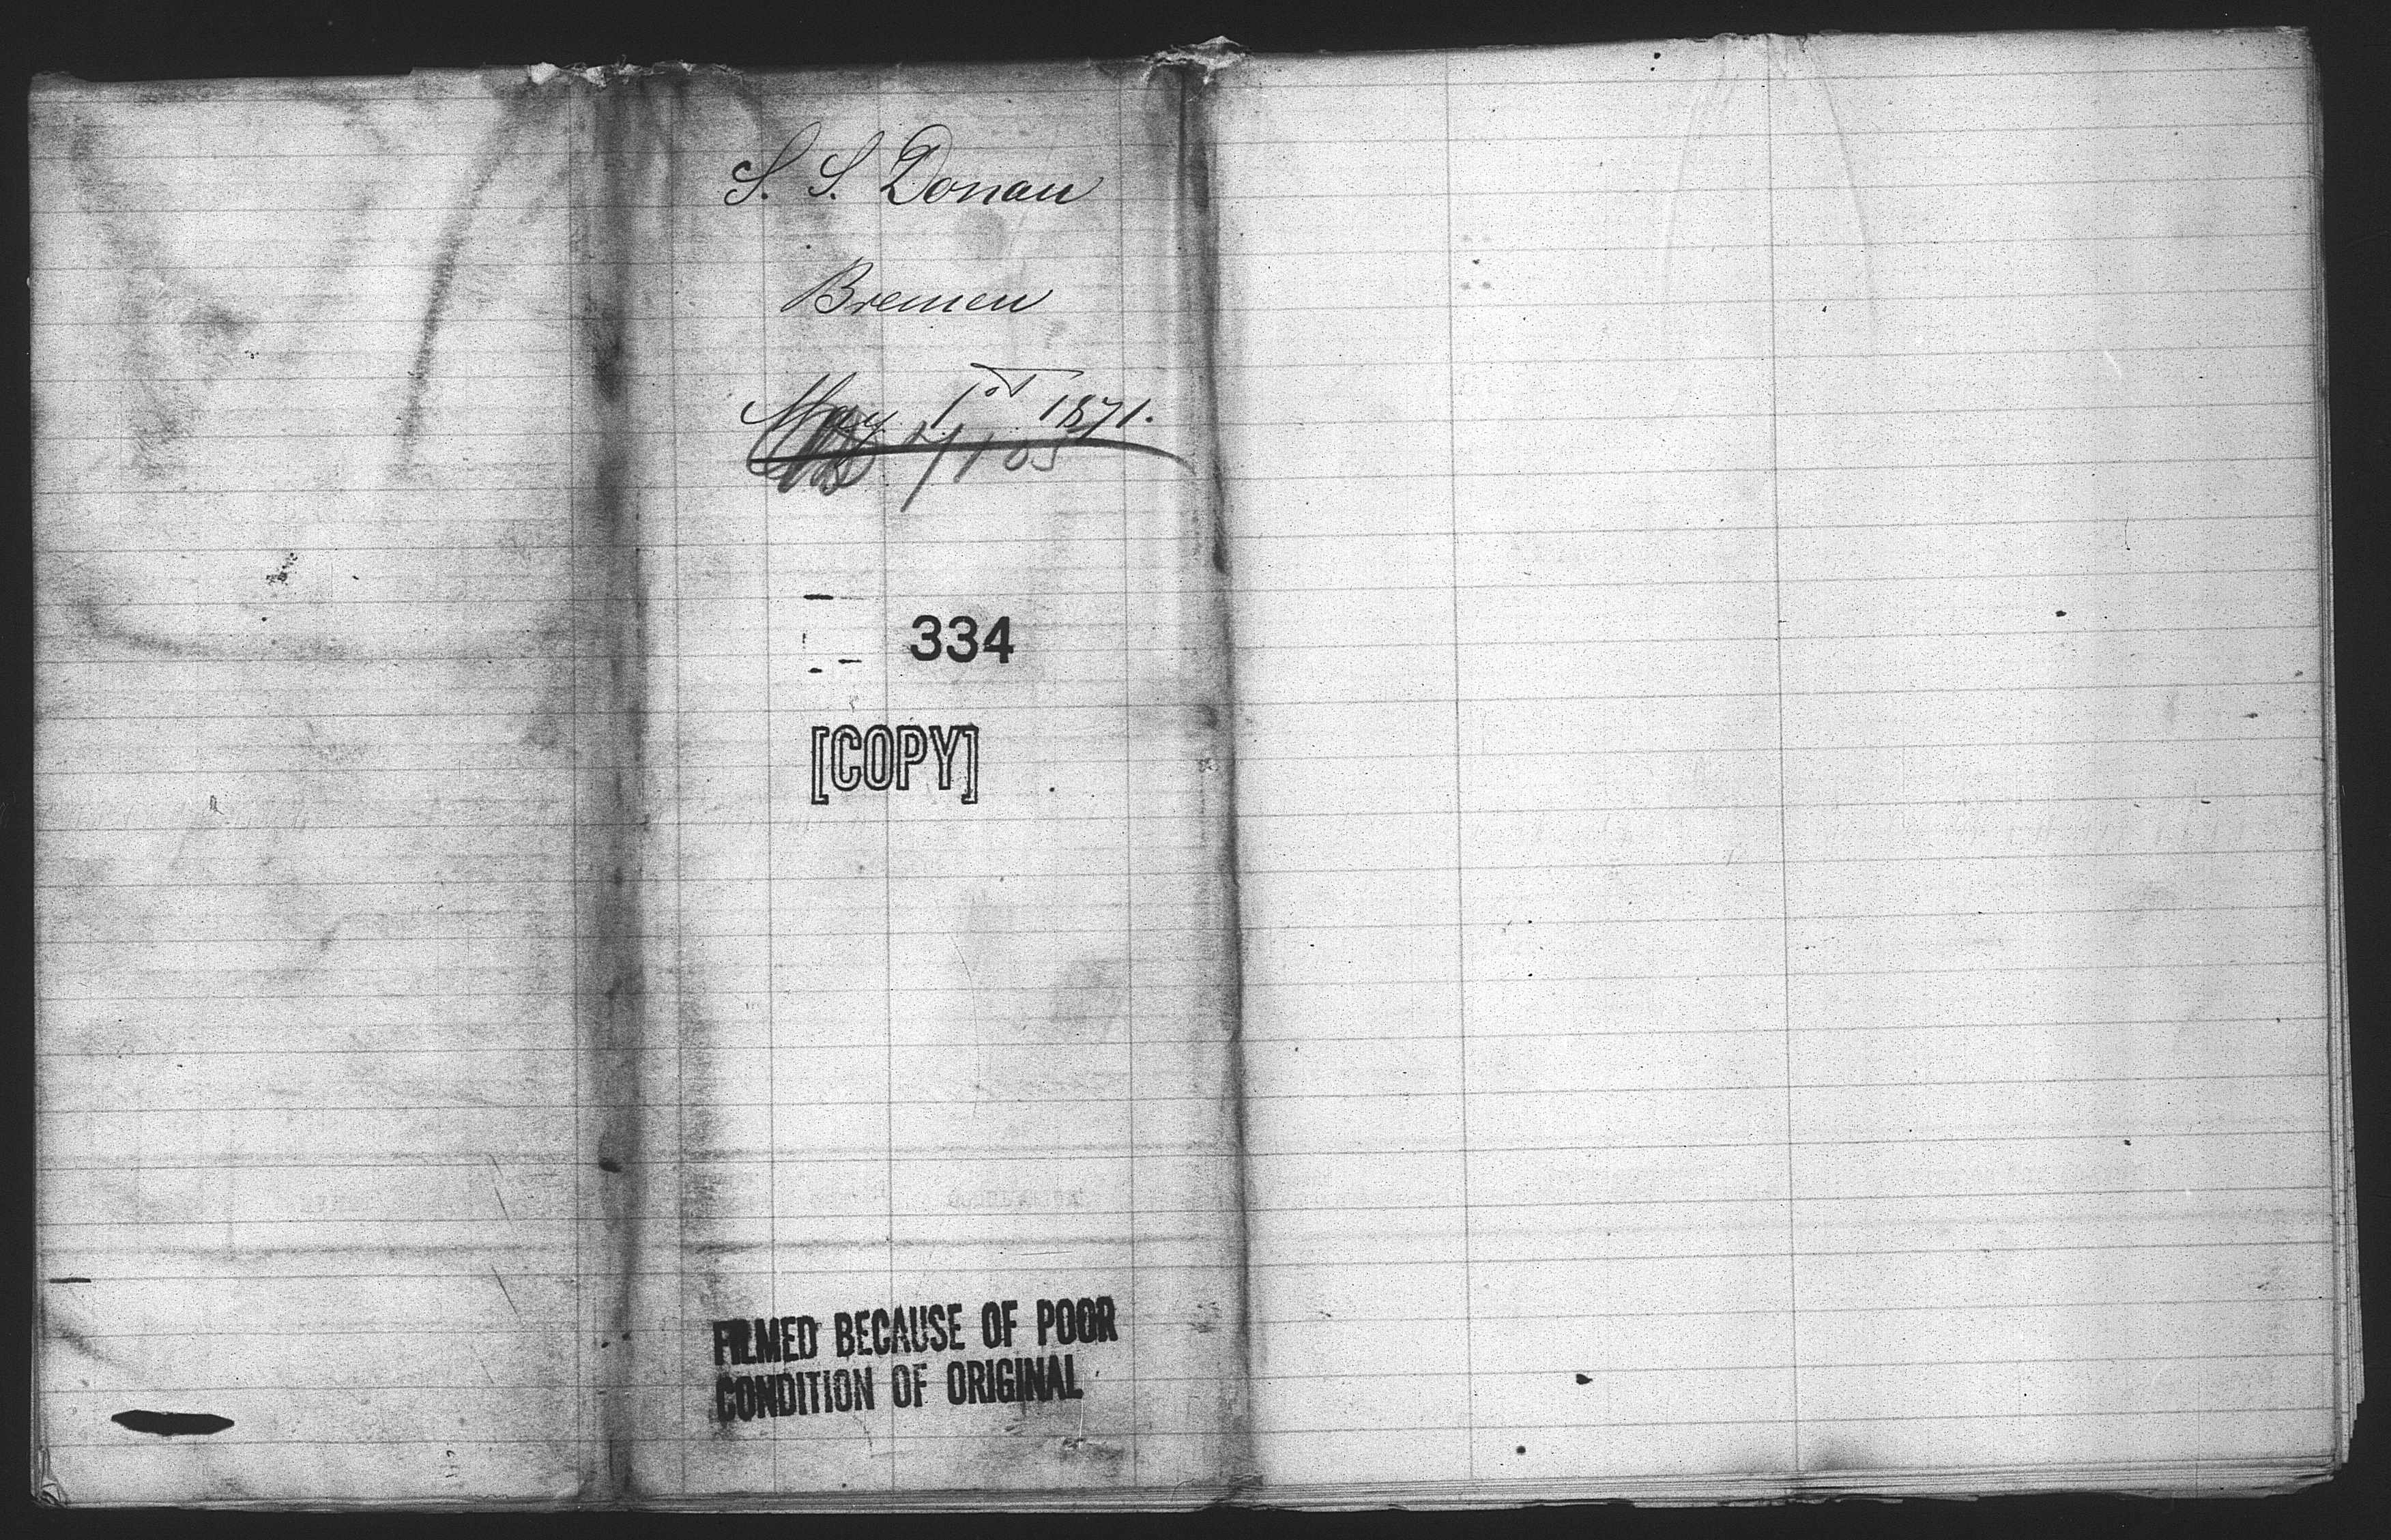 S. S. Donau
Bremen
May 1st 1871.
334
[COPY]
FILMED BECAUSE OF POOR
CONDITION OF ORIGINAL